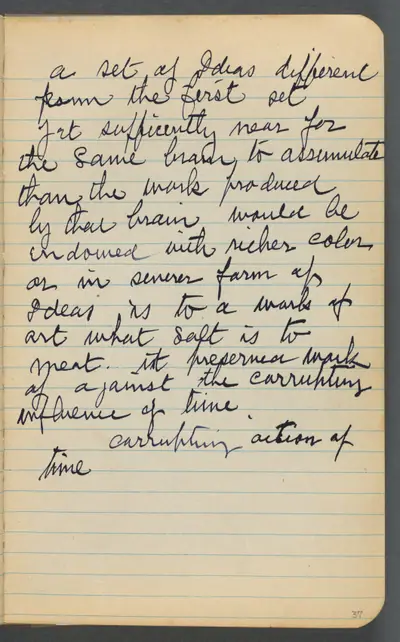 a set of Ideas different
from the first set
yet sufficently near for
the same brain to assumulate
than the work produced
by that brain would be
endowed with richer color
or in severer form of
Ideas is to a work of
art what salt is to
meat. it preserved work
of against the corrupting
influence of time.
corrupting action of
time
37